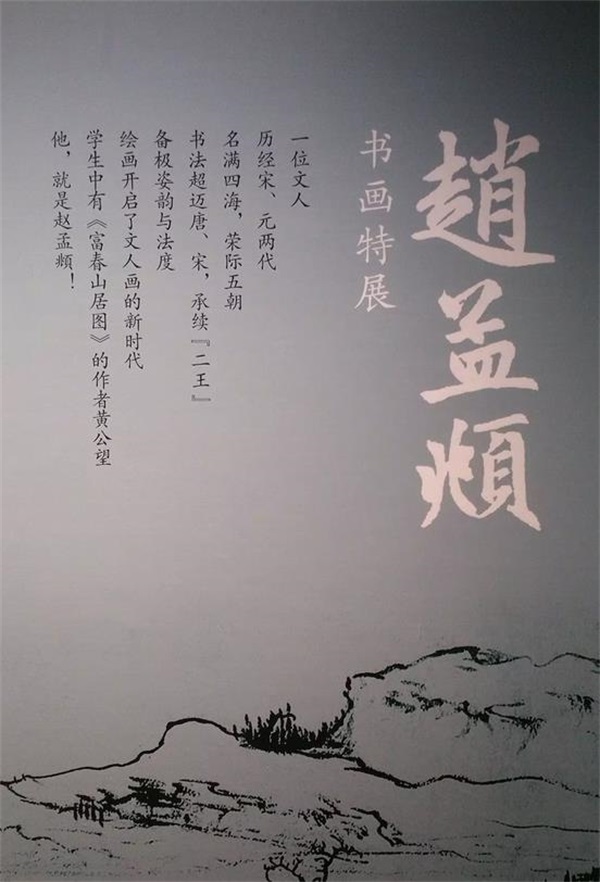 趙孟頫
书画特展
一位文人
历经宋、元两代
名满四海，荣际五朝
书法超迈唐、宋，承续『二王』
备极姿韵与法度
绘画开启了文人画的新时代
学生中有《富春山居图》的作者黄公望
他，就是赵孟頫！